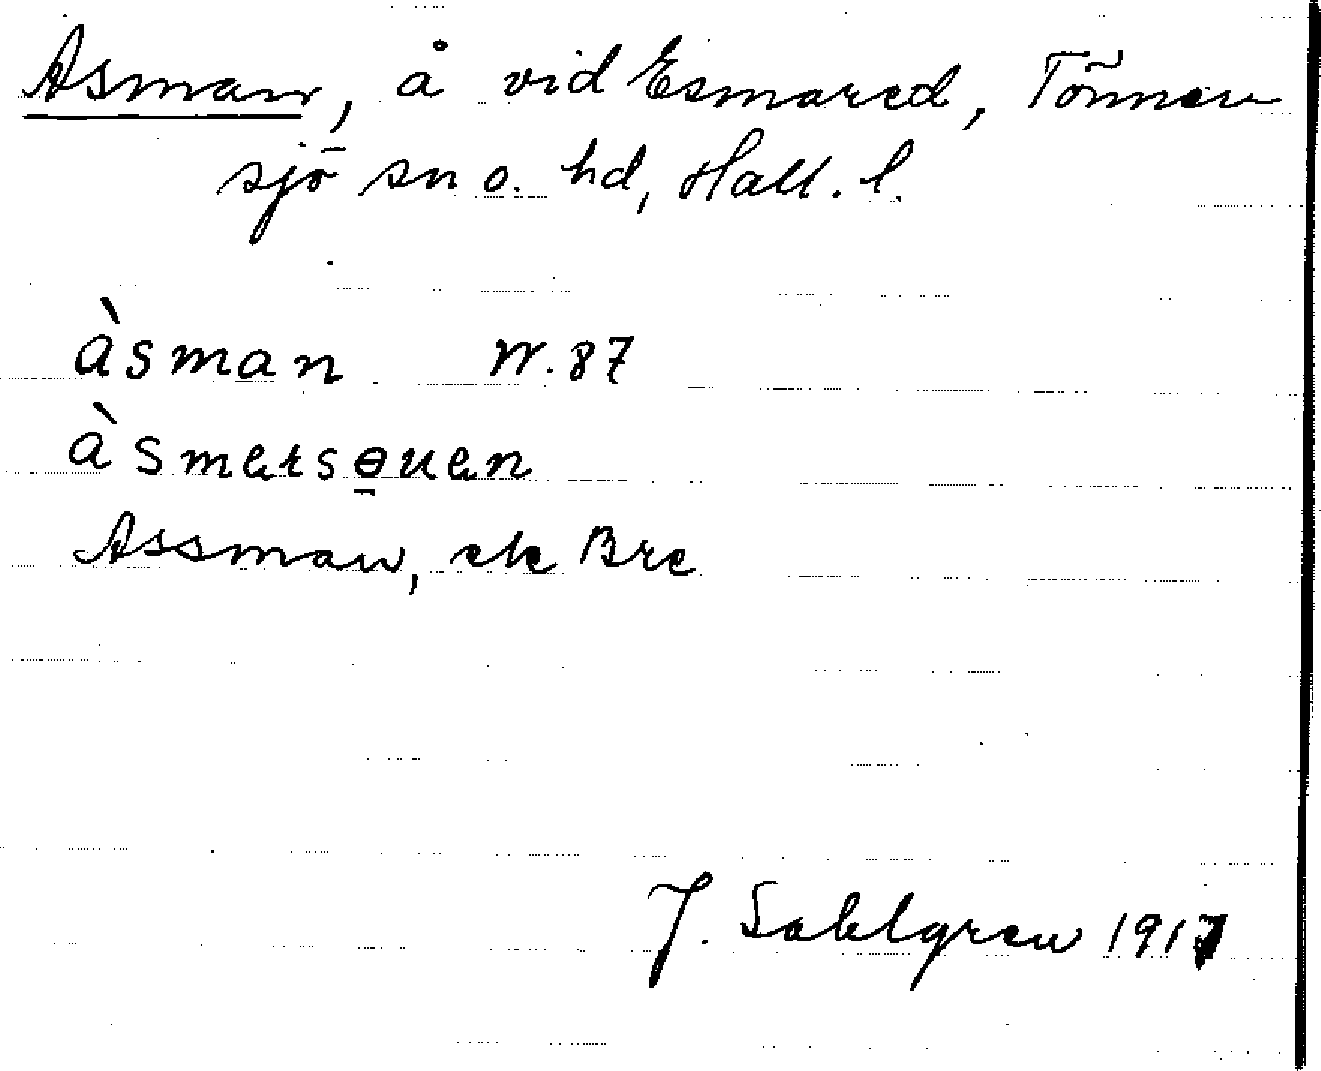 Asman, å vid Esmared, Tönner
sjö sn o. hd, Hall. l.
àsman W. 87
àsmarsɵuen
Assman, ek Bre
J. Sahlgren 1917